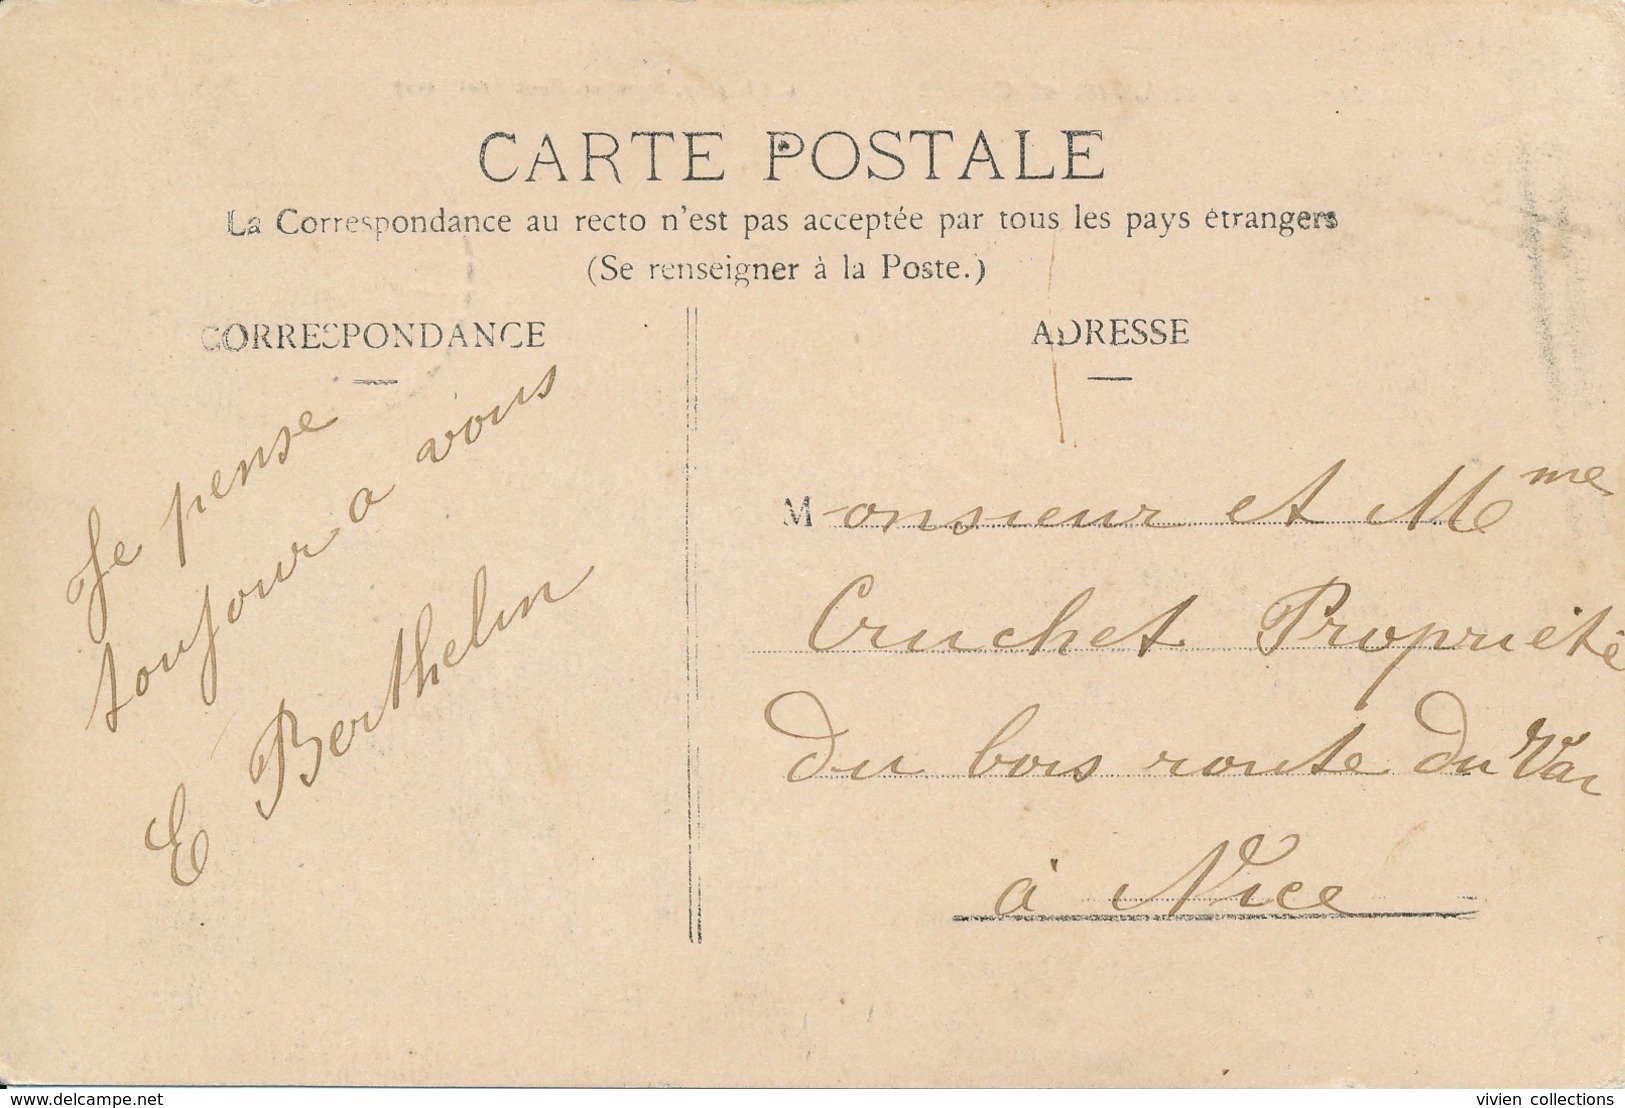 CARTE POSTALE
La Correspondance au recto n'est pas acceptée par tous les pays étrangers
(Se renseigner à la Poste.)
CORRESPONDANCE
Je pense
toujour a vous
E Berthelin
ADRESSE
Monsieur et Mme
Cruchet Propriété
du bois route du Var
à Nice
www.delcampe.net
vivien collections